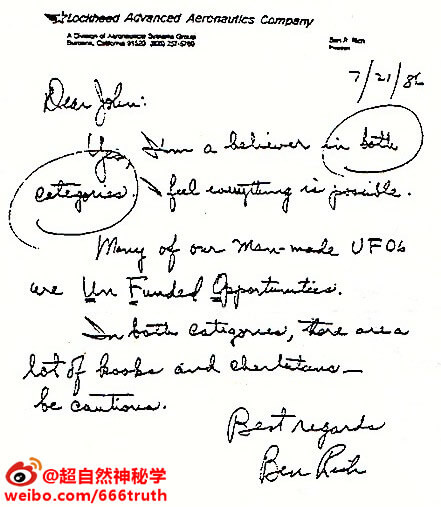 Lockheed Advanced Aeronautics Company
A Division of Aeronautical Systems Group
Burbank, California 91520 (805) 257-5760
Ben R. Rich
President
7/21/86
Dear John:
Yes, I'm a believer in both
categories. I feel everything is possible.
Many of our man-made UFO's
are Un Funded Opportunities.
In both categories, there are a
lot of kooks and charletans—
be cautious.
Best regards
Ben Rich
@超自然神秘学
weibo.com/666truth